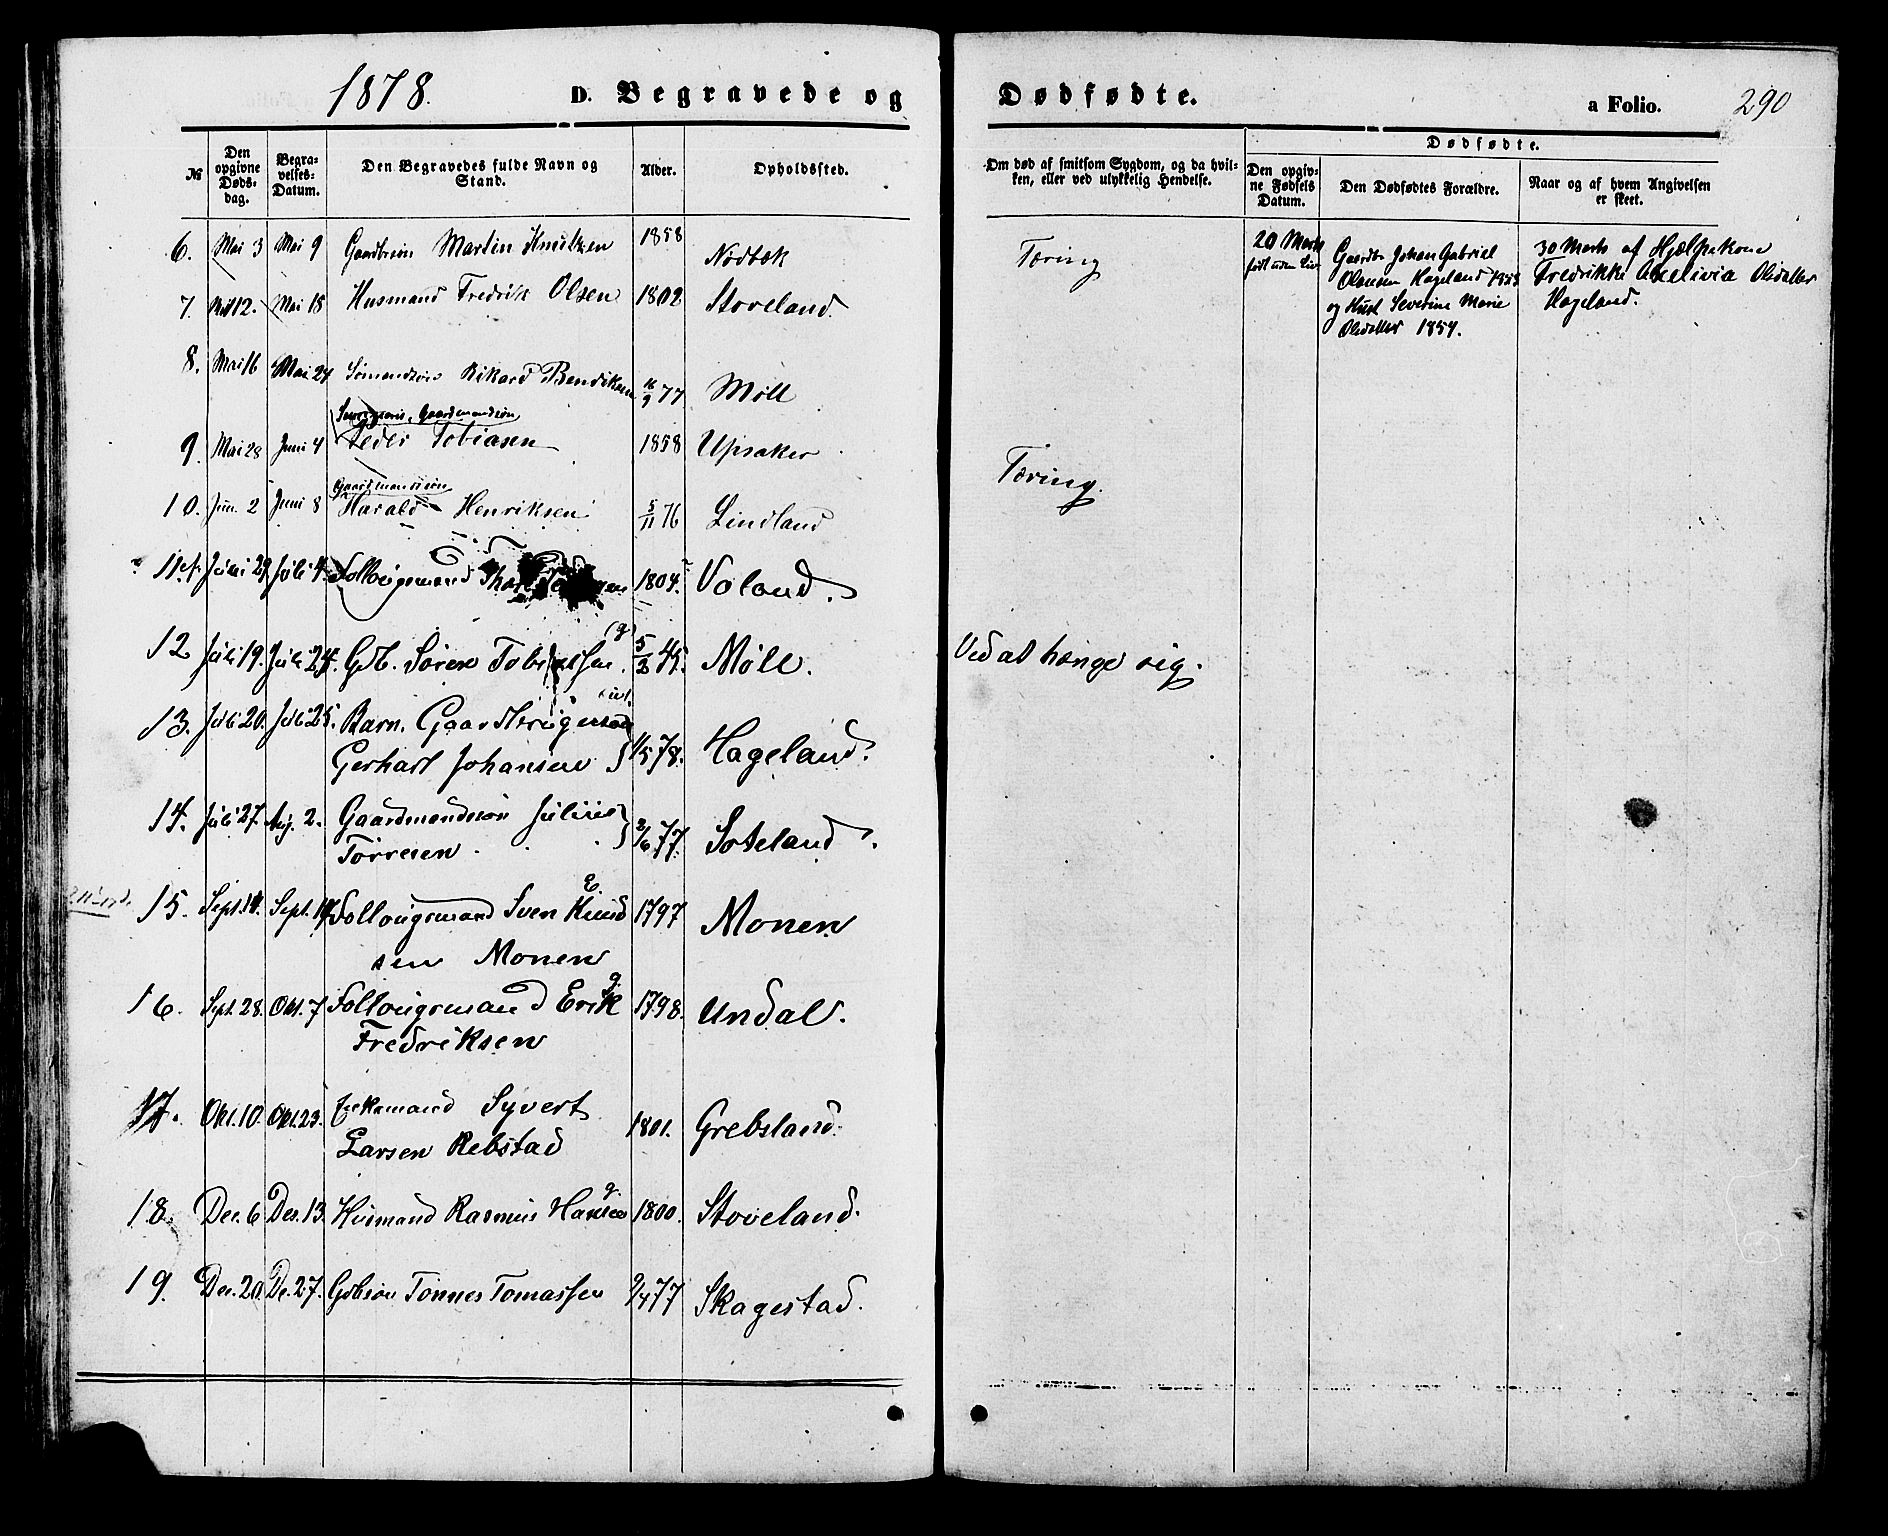 1878. D. Begravede og Dødfødte. a Folio. 290
№ Den opgivne Døds-dag. Begra-velses-Datum. Den Begravedes fulde Navn og Stand. Alder. Opholdssted. Om død af smitsom Sygdom, og da hvil-ken, eller ved ulykkelig Hendelse. Dødfødte. Den opgiv-ne Fødsels Datum. Den Dødfødtes Forældre. Naar og af hvem Angivelsen er skeet.
6. Mai 3 Mai 9 Gaardbrsøn Martin Knutzen 1858 Nødbæk Tæring
20 Marts født uden Liv
Gaardbr Johan Gabriel
Olausen Hageland 1853
og Hust Severine Marie
Olsdatter 1857.
30 Marts af Hjælpekone
Fredrikke Olsdatter
Hageland.
7. Mai 12. Mai 18 Husmand Fredrik Olsen 1802 Stoveland
8. Mai 16 Mai 24 Sømandsøn Rikard Bendiksen 16/9 77 Møll
Gaardmandsøn
9. Mai 28 Juni 4 Peder Tobiasen 1858 Upsaker Tæring.
Gaardmandssøn
10. Jun. 2 Juni 8 Harald Henriksen 5/11 76 Lindland
11. Juni 29 Juli 4. Follougsmand 1804. Voland.
12 Juli 19. Juli 24. Gbr. Søren Tobiassen (g) 5/2 45. Møll. Ved at hænge sig.
13. Juli 20. Juli 25. Barn. Gaardbrugersøn
Gerhart Johansen 1/5 78. Hageland.
14. Juli 27. Aug. 2. Gaardmandssøn Julius
Torresen. 2/6 77. Soteland.
15. Sept. 11. Sept. 19. Follougsmand Sven Knud E. 1797 Monen
sen Monen
16. Sept. 28. Okt. 7 Follougsmand Erik g. 1798. Undal.
Fredriksen
17. Okt. 10. Okt. 23. Enkemand Syvert
Larsen Rebstad 1801. Grebsland.
18. Dec. 6 Dec. 13. Husmand Rasmus Hansen g. 1800. Stoveland.
19. Dec. 20. De. 27. Gdbsøn Tønnes Tomassen 9/4 77 Skagestad.